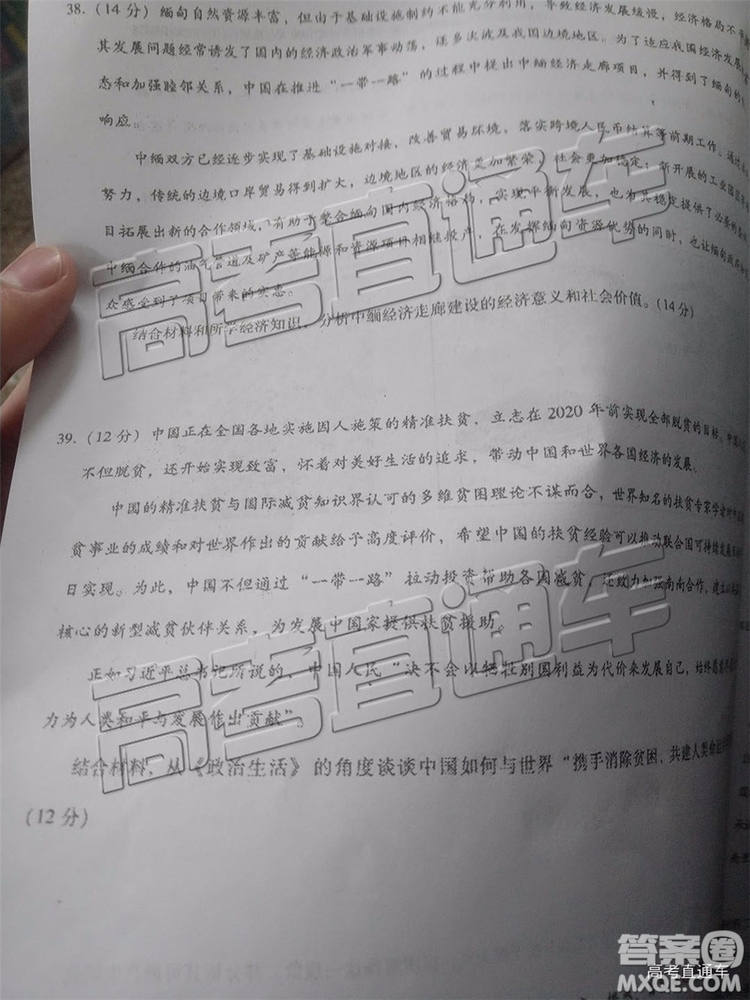 38. (14分) 缅甸自然资源丰富，但由于基础设施制约不能充分利用，导致经济发展缓慢，经济格局不
其发展问题经常诱发了国内的经济政治军事动荡，还多次波及我国边境地区。为了适应我国经济发展
态和加强睦邻关系，中国在推进“一带一路”的过程中提出中缅经济走廊项目，并得到了缅甸的
响应。
中缅双方已经逐步实现了基础设施对接，改善贸易环境，落实跨境人民币结算等前期工作。通过
努力，传统的边境口岸贸易得到扩大，边境地区的经济更加繁荣，社会更加稳定；新开展的工业园区
目拓展出新的合作领域，有助于整合缅甸国内经济格局，实现平衡发展，也为其稳定提供了必要的
中缅合作的油气管道及矿产等能源和资源项目相继投产，在发挥缅甸资源优势的同时，也让缅甸政府
众感受到了项目带来的实惠。
结合材料和所学经济知识，分析中缅经济走廊建设的经济意义和社会价值。(14分)
39. (12分) 中国正在全国各地实施因人施策的精准扶贫，立志在2020年前实现全部脱贫的目标。
不但脱贫，还开始实现致富，怀着对美好生活的追求，带动中国和世界各国经济的发展。
中国的精准扶贫与国际减贫知识界认可的多维贫困理论不谋而合，世界知名的扶贫专家学者对
贫事业的成绩和对世界作出的贡献给予高度评价，希望中国的扶贫经验可以推动联合国可持续发展
日实现。为此，中国不但通过“一带一路”拉动投资帮助各国减贫，还致力加强南南合作，建立
核心的新型减贫伙伴关系，为发展中国家提供扶贫援助。
正如习近平总书记所说的，中国人民“决不会以牺牲别国利益为代价来发展自己，始终愿意
力为人类和平与发展作出贡献”。
结合材料，从《政治生活》的角度谈谈中国如何与世界“携手消除贫困，共建人类命运
(12分)
高考直通车
高考直通车
答案圈
高考直通车
MXQE.COM